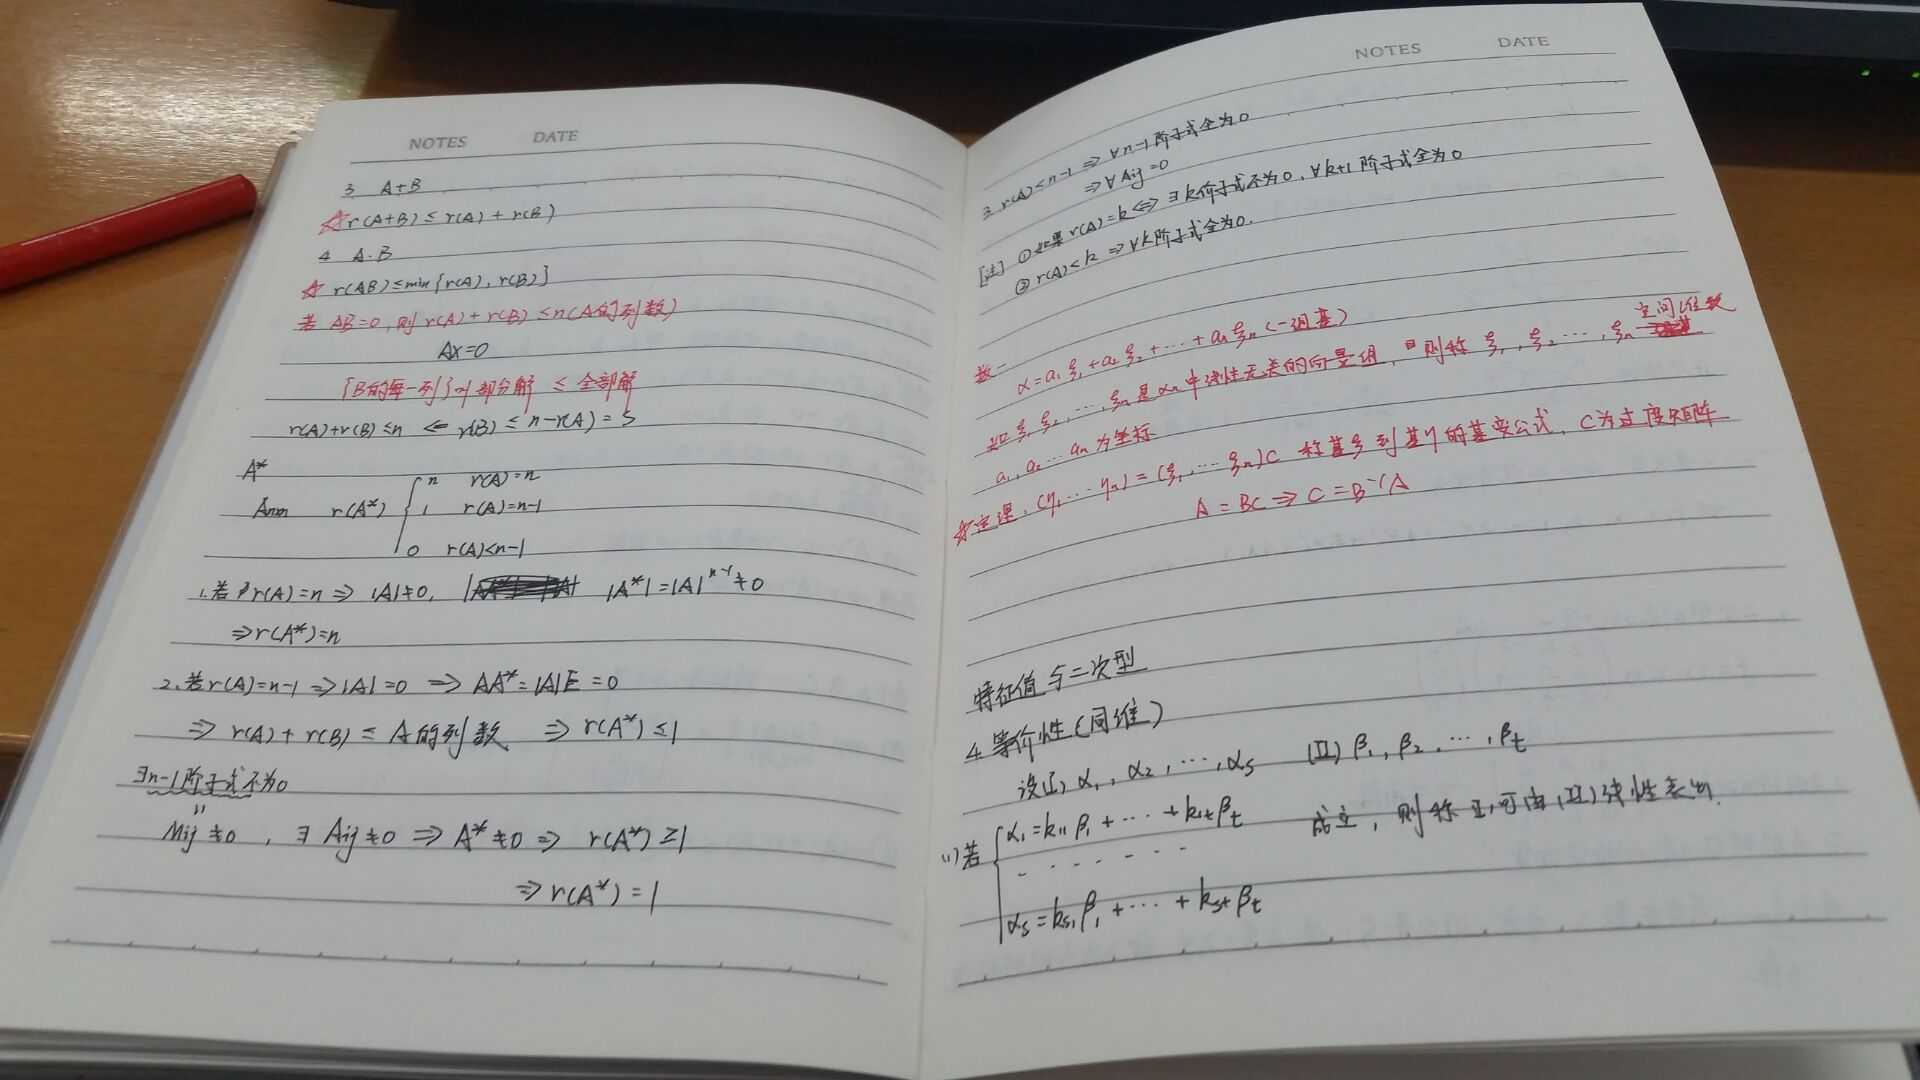 NOTES DATE
3. A+B
☆ r(A+B) ≤ r(A) + r(B)
4 A·B
☆ r(AB) ≤ min{r(A), r(B)}
若 AB=0, 则 r(A) + r(B) ≤ n(A的列数)
Ax=0
{B的每一列} 部分解 ≤ 全部解
r(A)+r(B) ≤ n ⇐ r(B) ≤ n-r(A) = S
A*
r(A*) { n r(A)=n
1 r(A)=n-1
0 r(A)<n-1
1. 若 r(A)=n ⇒ |A|≠0, |A*|=|A|ⁿ⁻¹≠0
⇒ r(A*)=n
2. 若 r(A)=n-1 ⇒ |A|=0 ⇒ AA*=|A|E=0
⇒ r(A) + r(B) ≤ A的列数 ⇒ r(A*) ≤ 1
∃n-1阶子式不为0
Mij ≠0 , ∃ Aij ≠0 ⇒ A*≠0 ⇒ r(A*) ≥1
⇒ r(A*) = 1
NOTES DATE
3 r(A)<n-1 ⇒ ∀n-1阶子式全为0
⇒ ∀Aij=0
[注] ①如果 r(A)=k ⇔ ∃k阶子式不为0, ∀k+1阶子式全为0
② r(A)<k ⇒ ∀k阶子式全为0.
空间维数
数一 α=a₁ξ₁+a₂ξ₂+⋯+aₙξₙ (一组基)
如ξ₁,ξ₂,⋯,ξₙ是 中线性无关的向量组, 则称 ξ₁,ξ₂⋯,ξₙ
a₁, a₂⋯aₙ为坐标
☆定理. (η₁,⋯ηₙ) = (ξ₁,⋯ξₙ)C 称基ξ到基η的基变公式, C为过度矩阵
A = BC ⇒ C = B⁻¹A
特征值与二次型
4. 等价性(同维)
设(I) α₁, α₂, ⋯, αs (II) β₁, β₂, ⋯, βt
(1)若 { α₁=k₁₁β₁ + ⋯ + k₁tβt 成立, 则称 I 可由(II)线性表出.
- - - - - -
αs=ks₁β₁ + ⋯ + kstβt